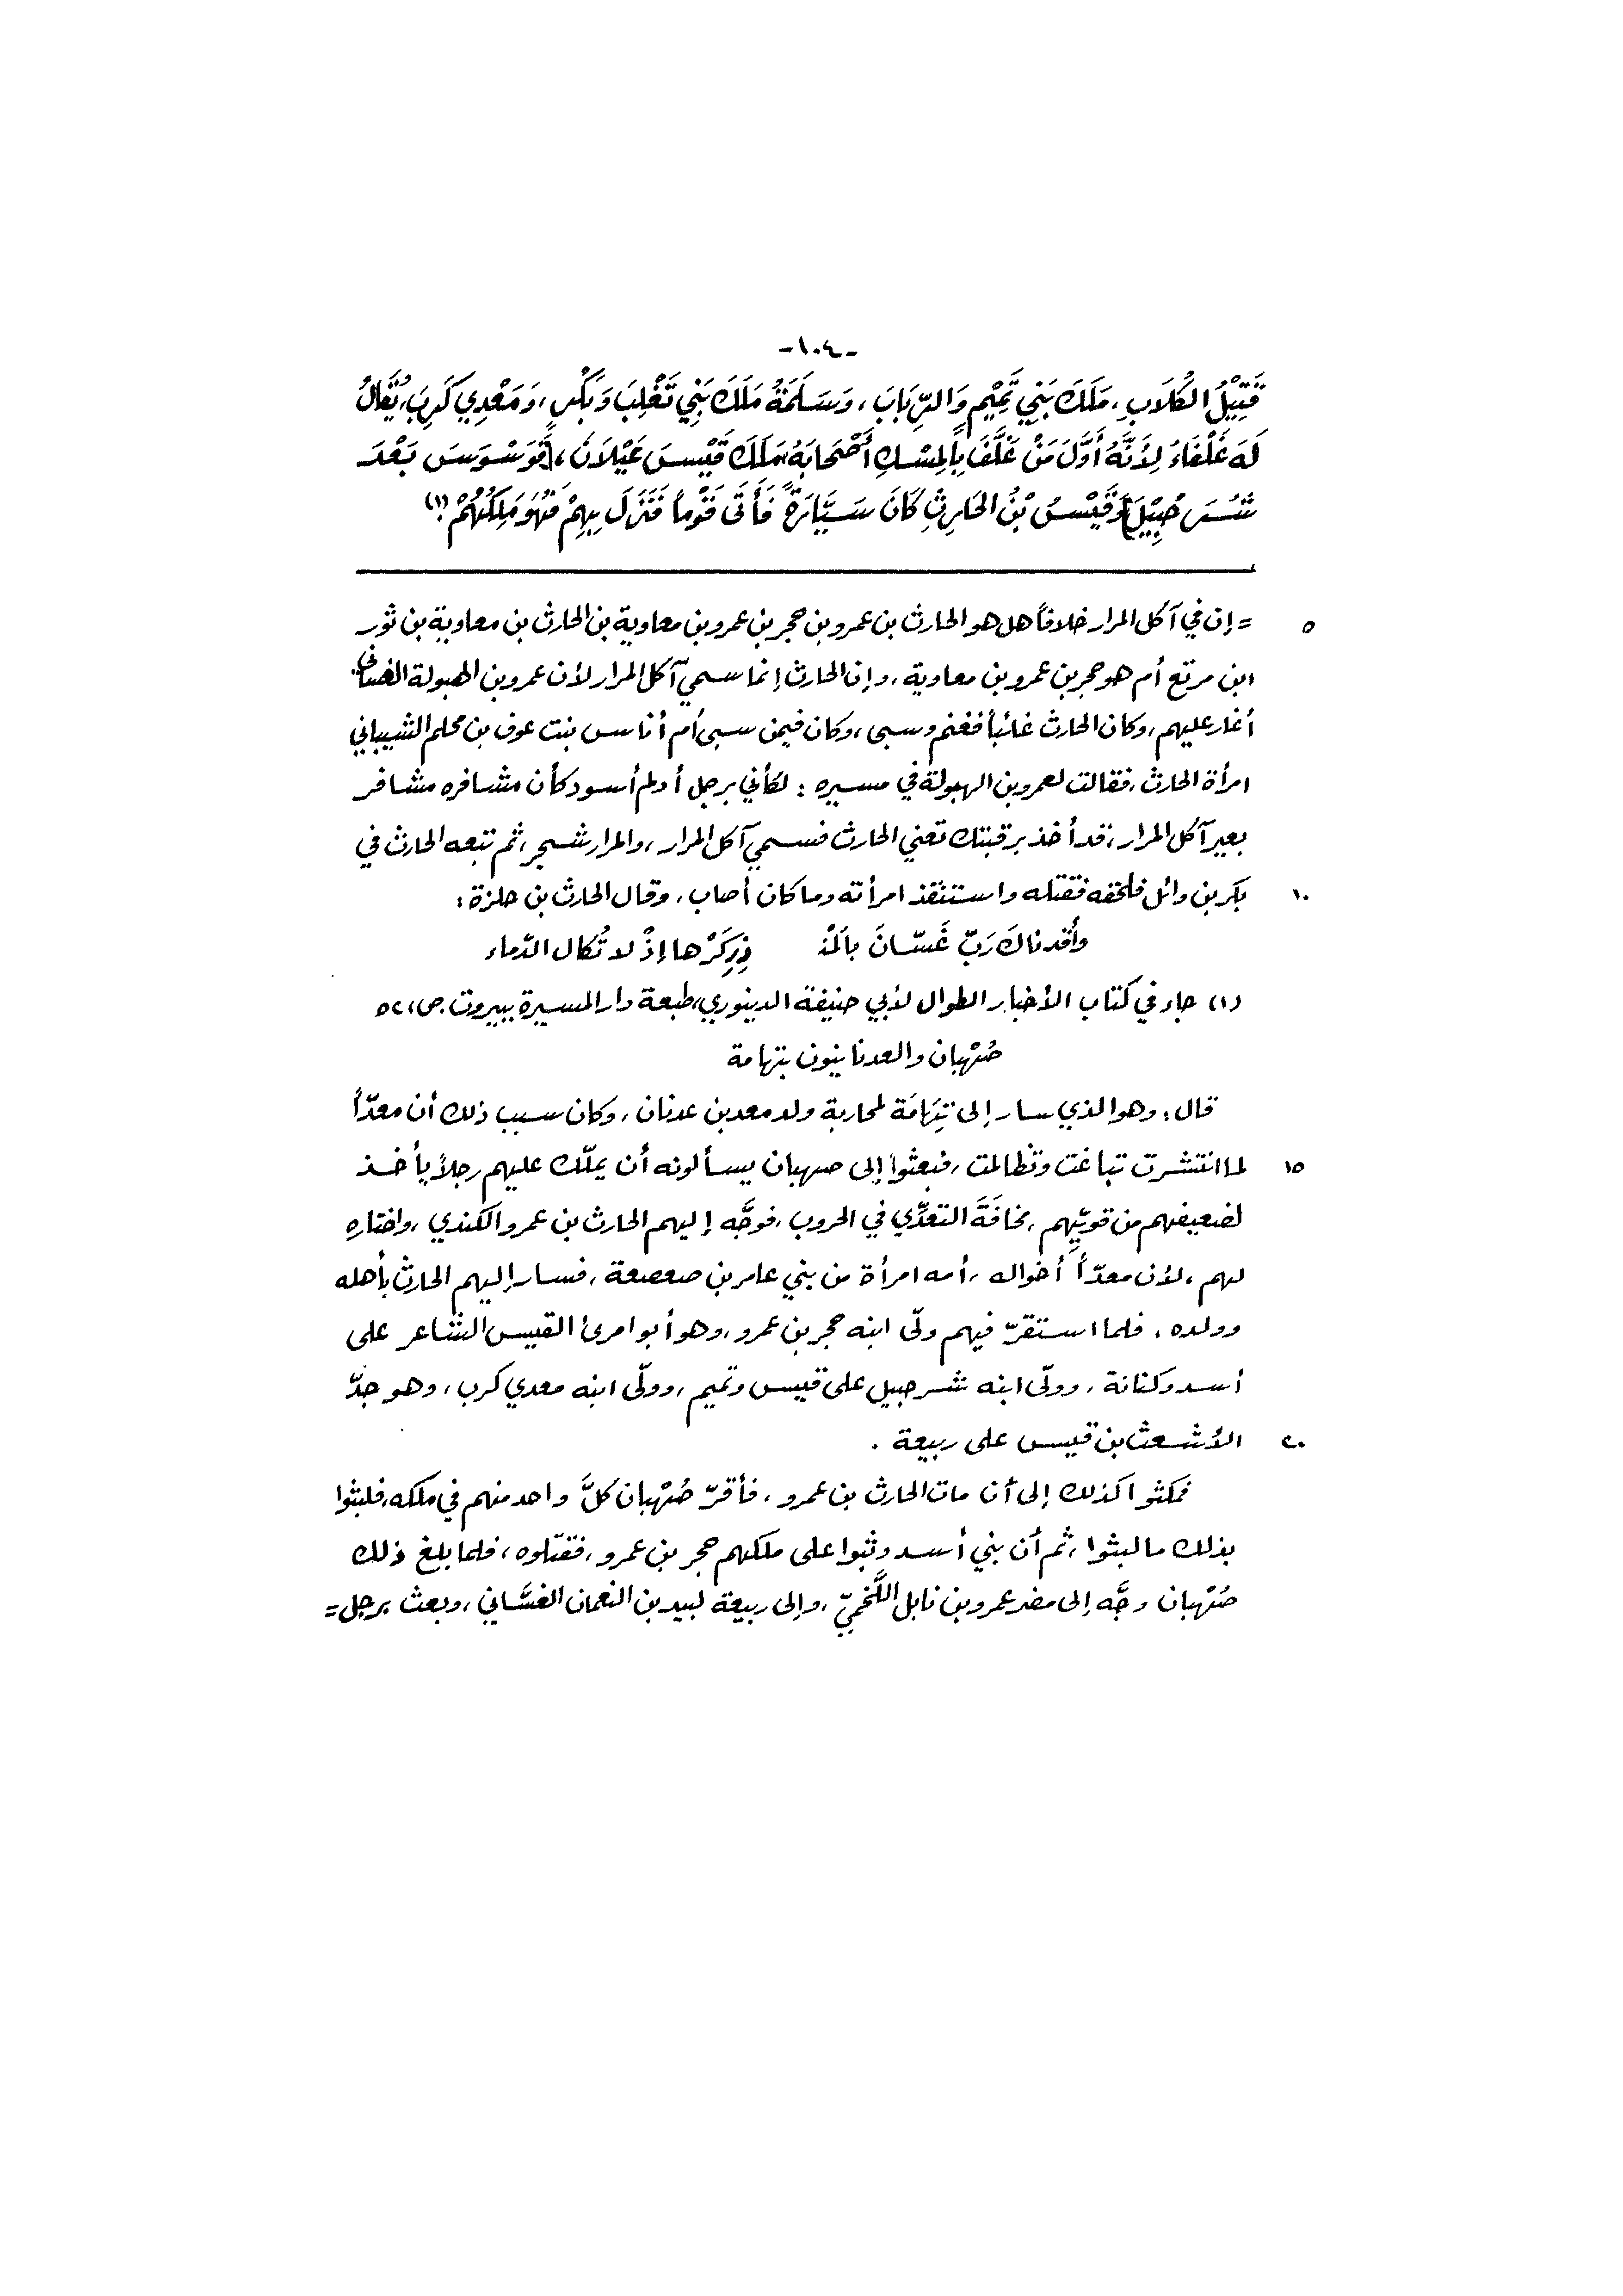 -١٠٤-
قَتِيْلُ الكُلَابِ، مَلَكَ بَنِي تَمِيْمٍ وَالرِّبَابَ، وَسَلَمَةُ مَلَكَ بَنِي تَغْلِبَ وَبَكْرٍ، وَمَعْدِي كَرِبَ، يُقَالُ
لَهَ غَلْفَاءُ لِأَنَّهُ أَوَّلَ مَنْ غَلَّفَ بِالمِسْكِ أَصْحَابَهُ، مَلَكَ قَيْسَ عَيْلَانَ، [فَوَسْوَسَ بَعْدَ
شُرَحْبِيْلَ] وَقَيْسُ بْنُ الحَارِثِ كَانَ سَيَّارَةً فَأَتَى قَوْماً فَنَزَلَ بِهِمْ فَهُوَ مَلِكُهُمْ.(١)
٥ = إن في آكل المرار خلافاً هل هو الحارث بن عمرو بن حجر بن عمرو بن معاوية بن الحارث بن معاوية بن ثور
ابن مرتع أم هو حجر بن عمرو بن معاوية، وإن الحارث إنما سمي آكل المرار لأن عمرو بن الهبولة الغساني
أغار عليهم، وكان الحارث غائباً فغنم وسبى، وكان فيمن سبى أم أناس بنت عوف بن محلم الشيباني
امرأة الحارث، فقالت لعمرو بن الهبولة في مسيره : لكأني برجل أدلم أسود كأن مشافره مشافر
بعير آكل المرار، قد أخذ برقبتك تعني الحارث فسمي آكل المرار، والمرار شجر، ثم تبعه الحارث في
١٠ بكر بن وائل فلحقه فقتله واستنقذ امرأته وما كان أصاب، وقال الحارث بن حلزة :
وأقدناك رَبّ غَسّانَ بالمنْـ ذِرِكَرْها إذْ لا تُكال الدّماء
(١) جاء في كتاب الأخبار الطوال لأبي حنيفة الدينوري، طبعة دار المسيرة ببيروت. ص، ٥٢
صُهْبان والعدنانيون بتهامة
قال: وهو الذي سار إلى تِهَامَة لمحاربة ولد معد بن عدنان، وكان سبب ذلك أن معدّاً
١٥ لما انتشرت تباغت وتظالمت، فبعثوا إلى صهبان يسألونه أن يملّك عليهم رجلاً يأخذ
لضعيفهم من قويّهم، مخافَةَ التعدِّي في الحروب، فوجَّه إليهم الحارث بن عمرو الكندي، واختاره
لهم، لأن معدّاً أخواله، أمه امرأة من بني عامر بن صعصعة، فسار إليهم الحارث بأهله
وولده، فلما استقرّ فيهم ولّى ابنه حجر بن عمرو، وهو أبو امرئ القيس الشاعر على
أسد وكنانة، وولّى ابنه شرحبيل على قيس وتميم، وولّى ابنه معدي كرب، وهو جدّ
٢٠ الأشعث بن قيس على ربيعة .
فمكثوا كذلك إلى أن مات الحارث بن عمرو، فأقرّ صُهْبان كلَّ واحد منهم في ملكه، فلبثوا
بذلك ما لبثوا، ثم أن بني أسد وثبوا على ملكهم حجر بن عمرو، فقتلوه، فلما بلغ ذلك
صُهْبان وجَّه إلى مضر عمرو بن نابل اللَّخْمِيّ، وإلى ربيعة لبيد بن النعمان الغسَّاني، وبعث برجل =